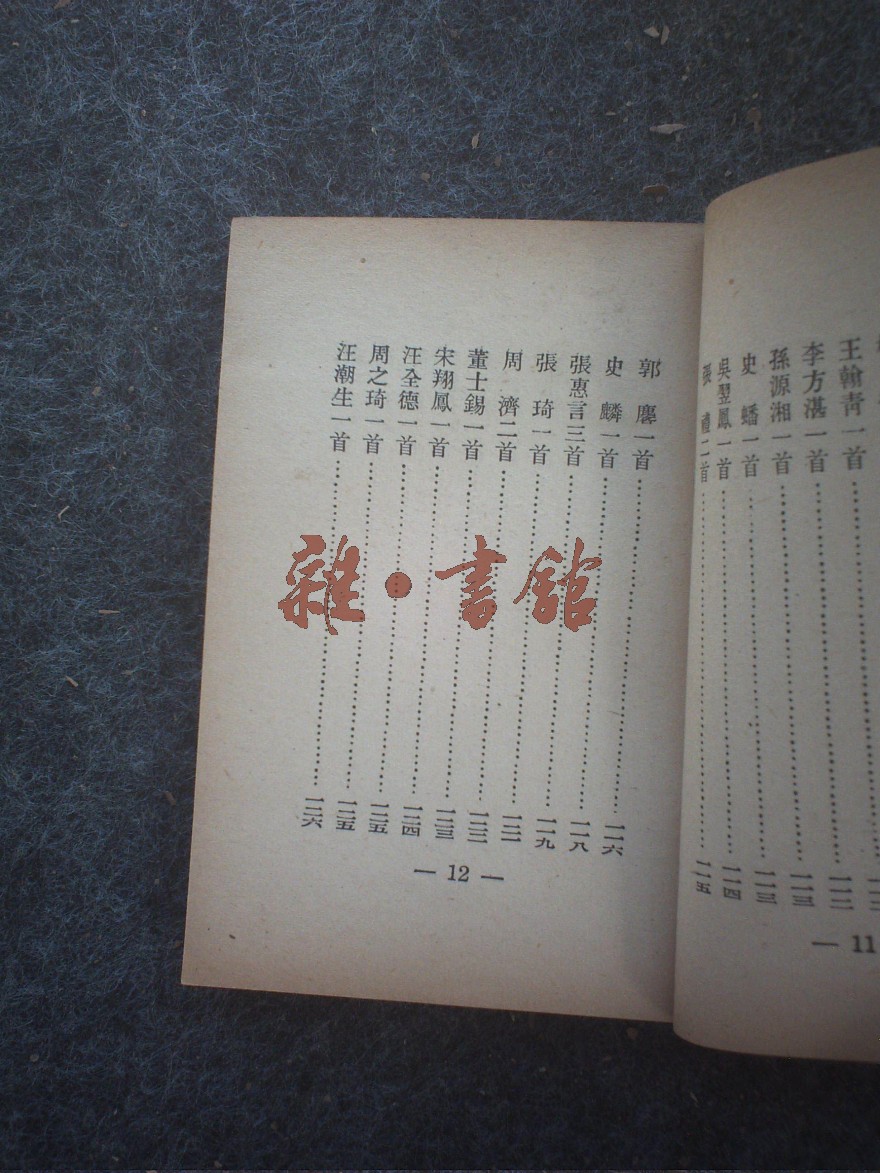 王翰青一首……一一二
李方湛一首……一一三
孫源湘一首……一一三
史蟠一首……一一四
吳翌鳳一首……一一五
張禮二首……
— 11
郭麐一首……一一六
史麟一首……一一八
張惠言三首……一一九
張琦一首……一二一
周濟二首……一二二
董士錫一首……一二三
宋翔鳳一首……一二四
汪全德一首……一二五
周之琦一首……一二五
汪潮生一首……一二六
— 12 —
雜·書館